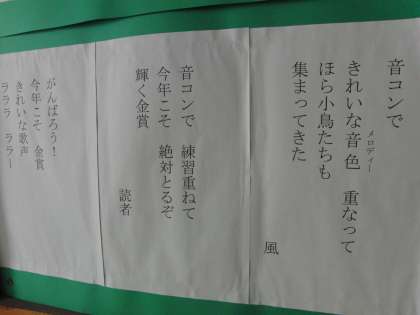 音コンで
きれいな音色　重なって
メロディー
ほら小鳥たちも
集まってきた
風
音コンで　練習重ねて
今年こそ　絶対とるぞ
輝く金賞
読者
がんばろう！
今年こそ　金賞
きれいな歌声
ラララ　ララー